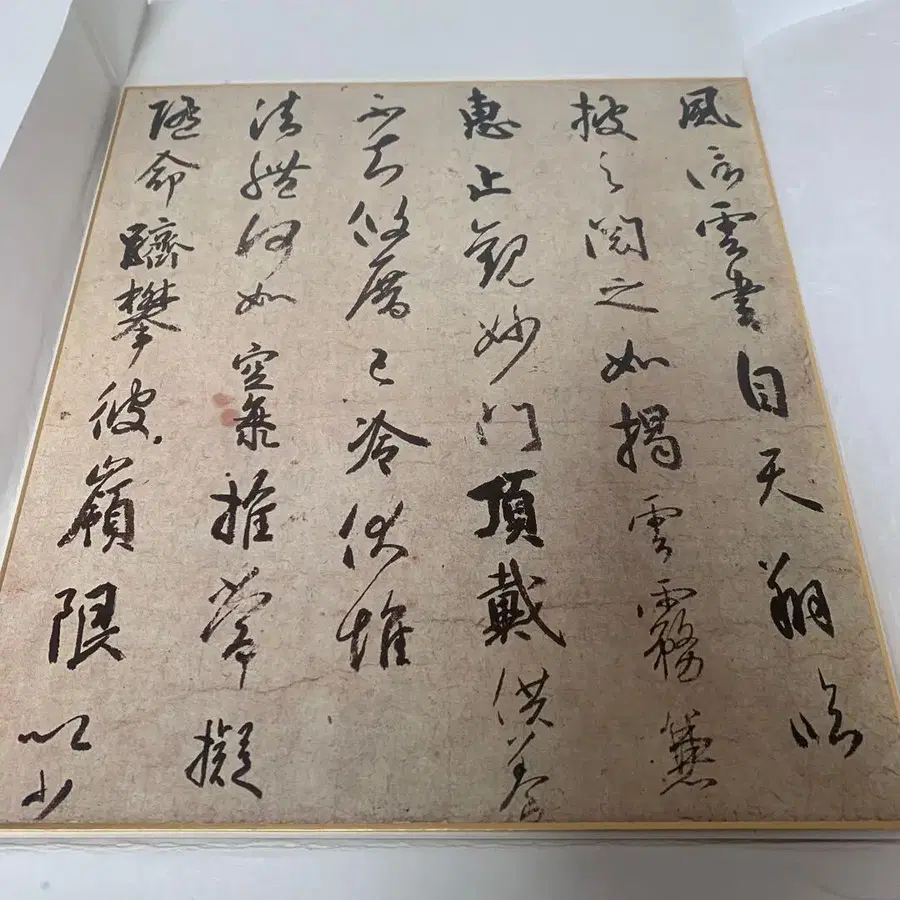 風信雲書自天翔臨
披之閱之如揭雲霧兼
惠止觀妙門頂戴供養
不知攸厝已冷伏惟
法體何如空海推常擬
隨命躋攀彼嶺限以少